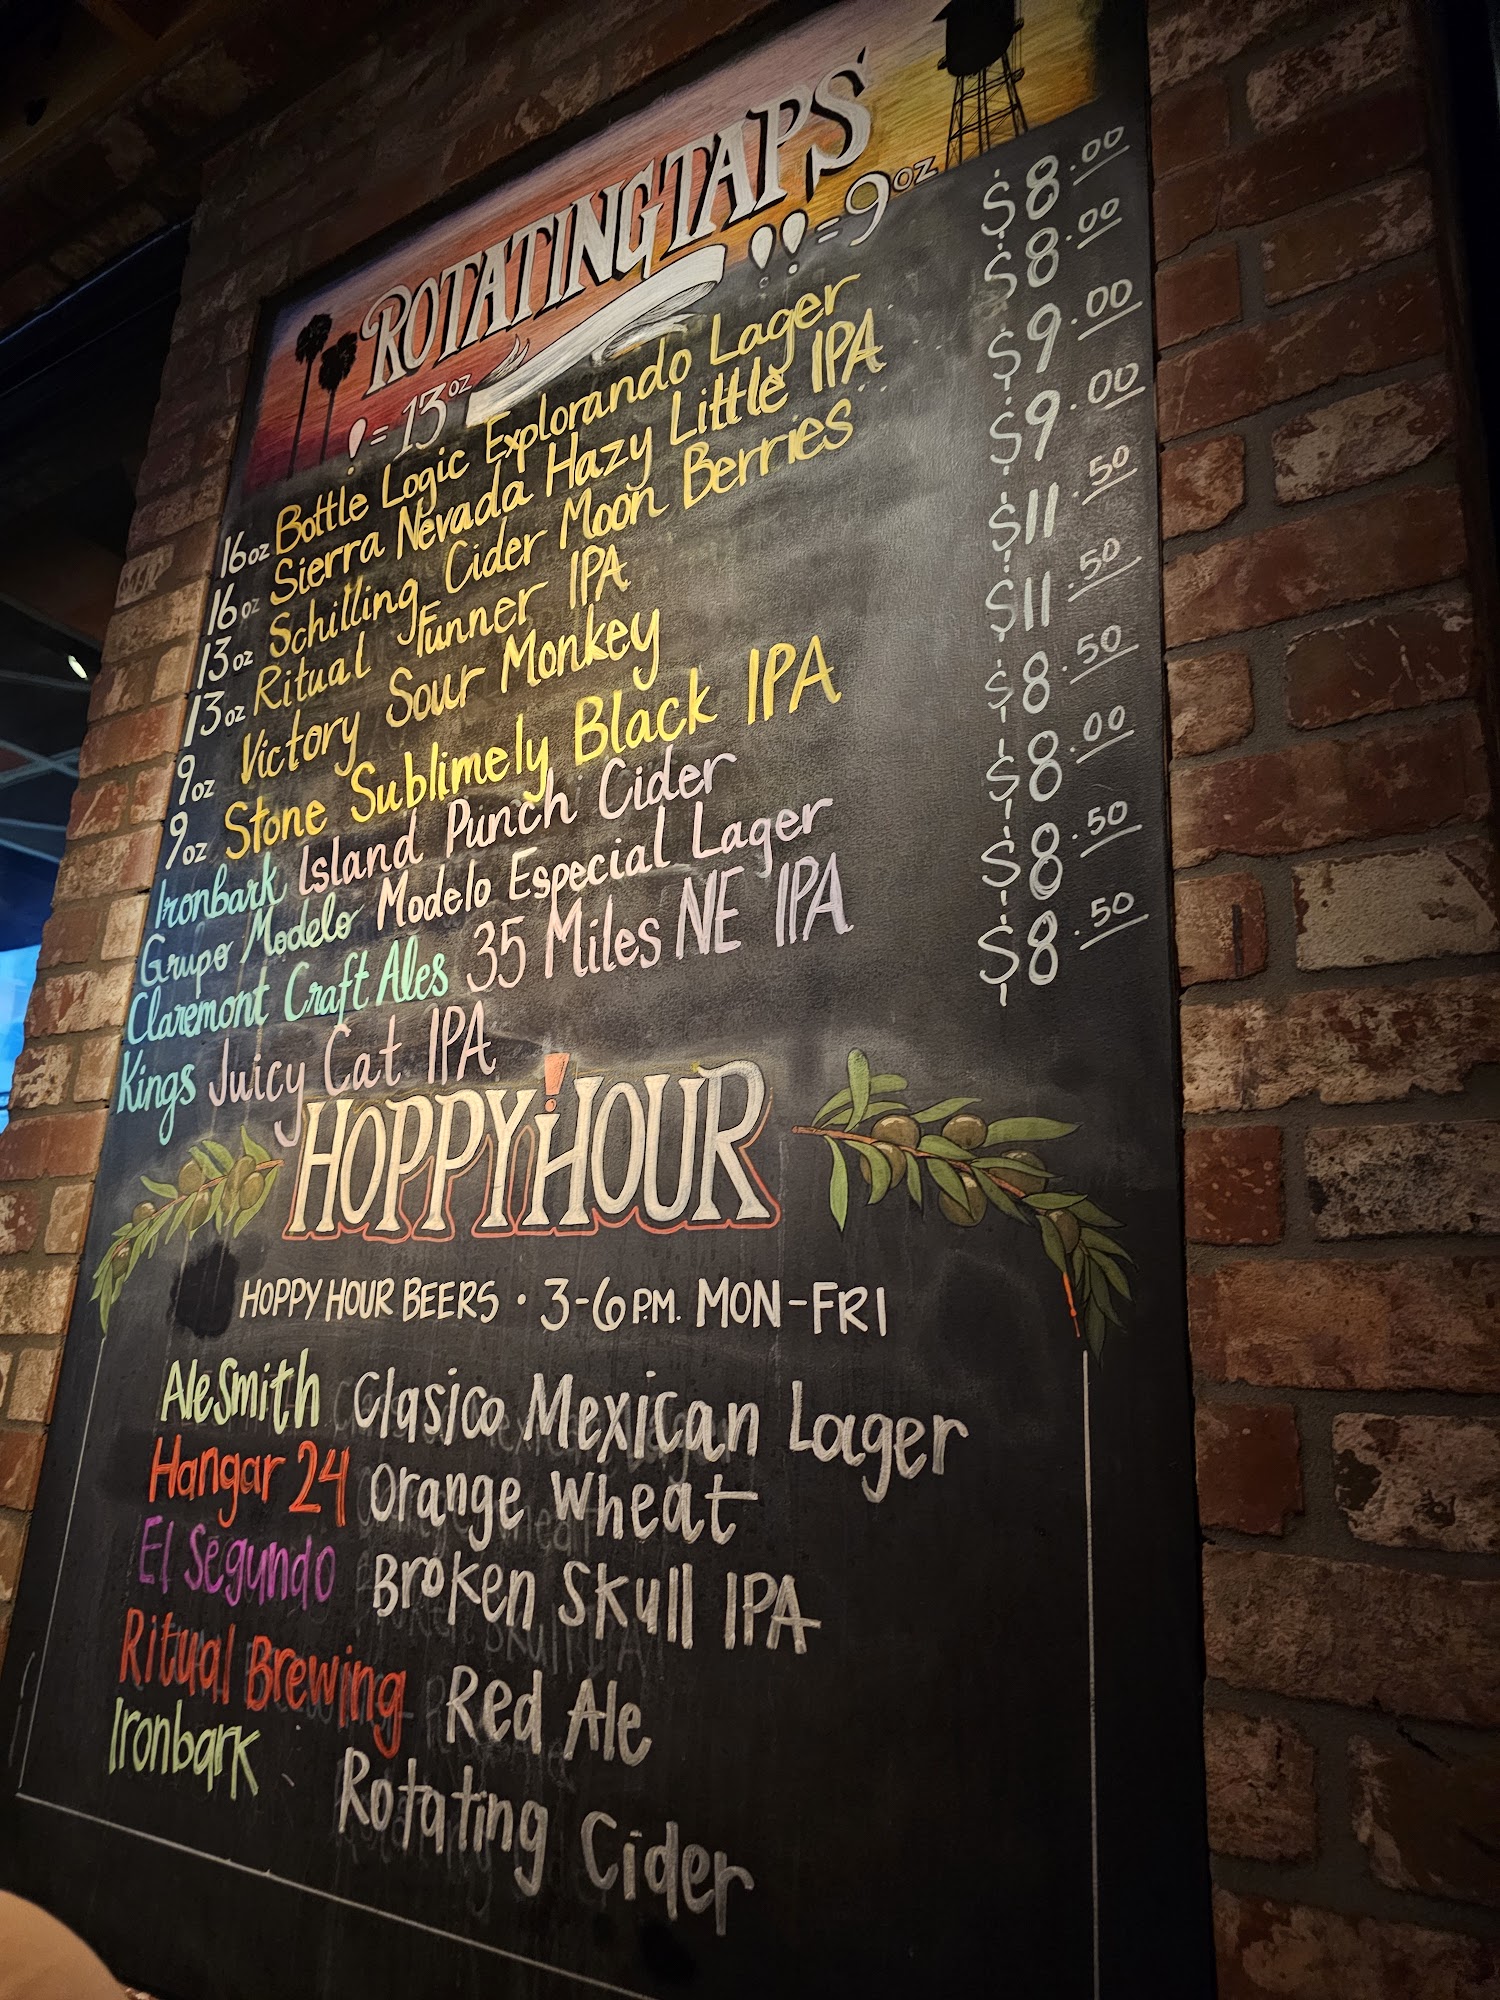 ROTATING TAPS
! = 13oz !! = 9oz
16oz Bottle Logic Explorando Lager $8.00
16oz Sierra Nevada Hazy Little IPA $8.00
13oz Schilling Cider Moon Berries $9.00
13oz Ritual Funner IPA $9.00
9oz Victory Sour Monkey $11.50
9oz Stone Sublimely Black IPA $11.50
Ironbark Island Punch Cider $8.50
Grupo Modelo Modelo Especial Lager $8.00
Claremont Craft Ales 35 Miles NE IPA $8.50
Kings Juicy Cat IPA $8.50
HOPPY HOUR
HOPPY HOUR BEERS · 3-6 P.M. MON-FRI
AleSmith Clasico Mexican Lager
Hangar 24 Orange Wheat
El Segundo Broken Skull IPA
Ritual Brewing Red Ale
Ironbark Rotating Cider